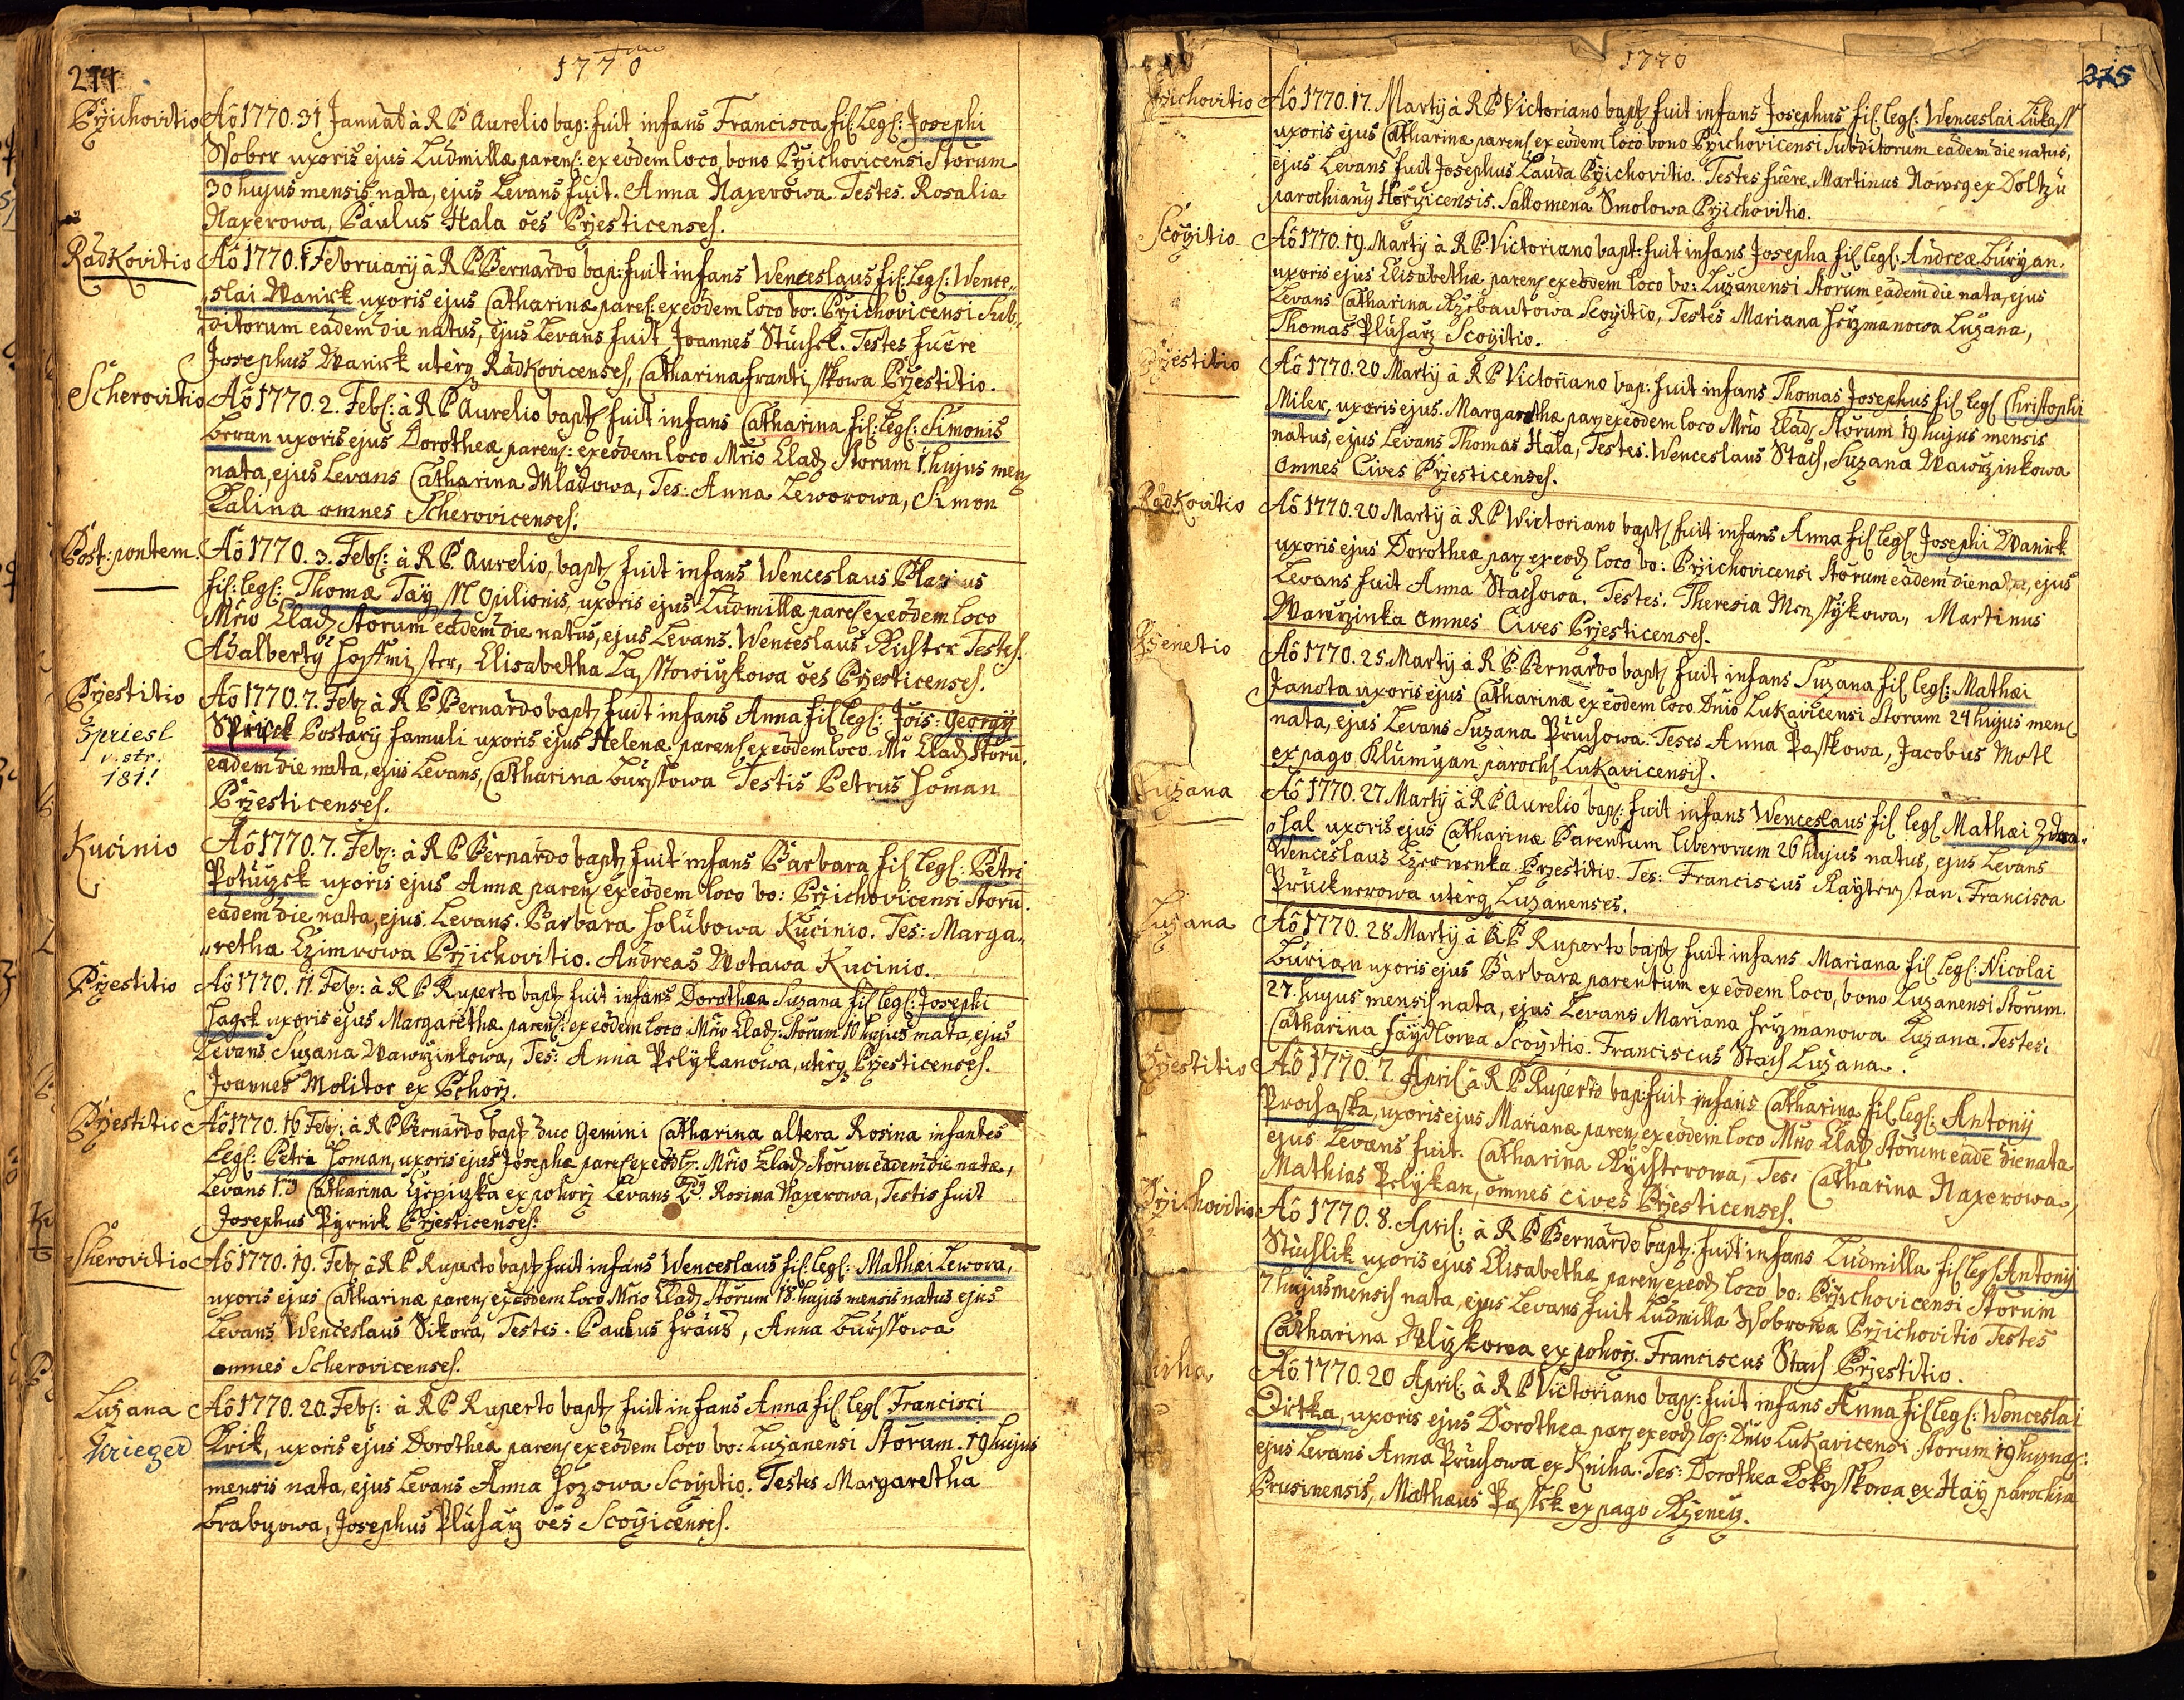 274
1770
Przichovitio Aô 1770. 31 Januar à R P Aurelio bap: fuit infans Francisca fil: Legl: Josephi
Wober uxoris ejus Ludmillæ parens: ex eôdem loco bono Przichovicensi Storum
30 hujus mensis nata, ejus Levans fuit. Anna Naxerowa. Testes. Rosalia
Naxerowa, Paulus Hala oēs Przesticenses.
Radkovitio Aô 1770. 1 February à R P Bernardo bap: fuit infans Wenceslaus fil: Legl: Wence„
„slai Wanick uxoris ejus Catharinæ parēs: ex eôdem loco bo: Przichovicensi Sub„
ditorum eâdem die natus, ejus Levans fuit Joannes Stuchck. Testes fuêre
Josephus Wanick uterq Radkovicenses, Catharina Frantisskowa Przestitio.
Scherovitio Aô 1770. 2. Febr: à R P Aurelio bapt fuit infans Catharina fil: Legl: Simonis
Beran uxoris ejus Dorotheæ parens: ex eôdem loco Mrio Clad Storum 1 hujus mens
nata, ejus Levans Catharina Mladowa, Tes: Anna Leworowa, Simon
Kalina omnes Scherovicenses.
Post: pontem. Aô 1770. 3. Febr: à R P. Aurelio, bapt fuit infans Wenceslaus Blasius
fil: legl: Thomæ Tay M Opilionis, uxoris ejus Ludmillæ parēs ex eôdem loco
Mrio Clad Storum eâdem die natus, ejus Levans. Wenceslaus Richter Testes.
Adalbertus Hoffmister, Elisabetha oēs Przesticenses.
Przestitio Aô 1770. 7. Feb à R P Bernardo bapt fuit infans Anna fil legl: Jois: Georgij
Spriesl
v. str.
181!
Postarij famuli uxoris ejus Helenæ parens ex eôdem loco. Mri Clad Storū.
eâdem die nata, ejus Levans, Catharina Bursstowa Testis Petrus Homan
Przesticenses.
Kucinio Aô 1770. 7. Feb: à R P Bernardo bapt fuit infans Barbara fil Legl: Petri
Potuczek uxoris ejus Annæ parens ex eôdem loco bo: Przichovicensi Storū.
eâdem die nata, ejus Levans. Barbara Holubowa Kucinio. Tes: Marga„
„retha Czimrowa Przichovitio. Andreas Wotawa Kucinio.
Przestitio Aô 1770. 11. Feb: à R P Ruperto bapt fuit infans Dorothea Suzana fil legl: Josephi
Hagek uxoris ejus Margarethæ parens: ex eôdem loco Mrio Clad: Storum 10 hujus nata, ejus
Levans Suzana Wawrzinkowa, Tes: Anna Pelykanowa, uterq Przesticenses.
Joannes Molitor ex Pohorz.
Przestitio Aô 1770. 16 Feb: à R P Bernardo bapt duo Gemini Catharina altera Rosina infantes
Legl: Petri Homan, uxoris ejus Josephæ parēs ex eôd l: Mrio Clad Storum eâdem die natæ,
Levans 1.æ Catharina ex pohorz Levans 2dæ Rosina Naxerowa, Testis fuit
Josephus Pyrnik Przesticenses:
Skerovitio Aô 1770. 19. Feb à R P Ruperto bapt fuit infans Wenceslaus fil: legl: Mathæi Lewora,
uxoris ejus Catharinæ parens ex eôdem loco Mrio Clad Storum 18. hujus mensis natus ejus
Levans Wenceslaus Sikora, Testes. Paulus Fraus, Anna Bursstowa
omnes Scherovicenses.
Luzana Aô 1770. 20. Feb: à R P Ruperto bapt fuit infans Anna fil legl Francisci
Krieger
Krik, uxoris ejus Dorotheæ parens ex eôdem loco bo: Luzanensi Storum. 19 hujus
mensis nata, ejus Levans Anna Hozowa Scoyitio. Testes Margaretha
Brabzowa, Josephus Pluharz oēs Scoyicenses.
1770
275
Przichovitio Aô 1770. 17. Martij à R P Victoriano bapt fuit infans Josephus fil legl: Wenceslai Lukass
uxoris ejus Catharinæ parens ex eôdem loco bono Przichovicensi Subditorum eâdem die natus,
ejus Levans fuit Josephus Lauda Przichovitio. Testes fuêre, Martinus Nowy ex Doltzu
parochianus Horzicensis. Sallomena Smolowa Przichovitio.
Scoyitio Aô 1770. 19. Martij à R P Victoriano bapt: fuit infans Josepha fil legl: Andreæ Buryan.
uxoris ejus Elisabethæ parens ex eôdem loco bo: Luzanensi Storum eâdem die nata, ejus
Levans Catharina Scoyitio, Testes Mariana Herzmanowa Luzana,
Thomas Pluharz Scoyitio.
Przestitio Aô 1770. 20 Martij à R P Victoriano bap: fuit infans Thomas Josephus fil legl Christophi
Miler, uxoris ejus. Margarethæ par ex eôdem loco Mrio Clad Storum 19 hujus mensis
natus, ejus Levans Thomas Hala, Testes. Wenceslaus Stach, Suzana Wawrzinkowa
Omnes Cives Przesticenses.
Radkovitio Aô 1770. 20 Martij à R P Wictoriano bapt fuit infans Anna fil legl Josephi Wanick
uxoris ejus Dorotheæ par ex eod loco bo: Przichovicensi Storum eâdem die nata, ejus
Levans fuit Anna Stachowa. Testes. Theresia Martinus
Wawrzinka Omnes Cives Przesticenses.
Rzenetio Aô 1770. 25. Martij à R P. Bernardo bapt fuit infans Suzana fil legl: Mathæi
Janota uxoris ejus Catharinæ ex eôdem loco Dnio Lukavicensi Storum 24 hujus mens
nata, ejus Levans Suzana Pruchowa. Teses Anna Passkowa, Jacobus Motl
ex pago Klumyan paroch Lukavicensis.
Luzana Aô 1770. 27. Martij à R P Aurelio bap: fuit infans Wenceslaus fil legl Mathæi Zdra„
„hal uxoris ejus Catharinæ Parentum liberorum 26 hujus natus, ejus Levans
Wenceslaus Czerwenka Przestitio. Tes: Franciscus stan. Francisca
Prucknerowa uterq Luzanenses.
Luzana Aô 1770. 28 Martij à R P Ruperto bapt fuit infans Mariana fil legl: Nicolai
Burian uxoris ejus Barbaræ parentum ex eôdem loco, bono Luzanensi Storum.
27. hujus mensis nata, ejus Levans Mariana Herzmanowa Luzana. Testes:
Catharina Faydlowa Scoyitio. Franciscus Stach Luzana.
Przestitio Aô 1770. 7. April à R P Ruperto bap: fuit infans Catharina fil legl: Antonij
Prochaska, uxoris ejus Marianæ parens ex eôdem loco Mrio Clad Storum eâdē die nata
ejus Levans fuit. Catharina Rychterowa, Tes: Catharina Naxerowa,
Mathias Pelykan, omnes cives Przesticenses.
Przichovitio Aô 1770. 8. April: à R P Bernardo bapt: fuit infans Ludmilla fil legl Antonij
Stuchlik uxoris ejus Elisabethæ parens ex eod loco bo: Przichovicensi Storum
7 hujus mensis nata, ejus Levans fuit Ludmilla Wobrowa Przichovitio Testes
Catharina ex pohorz. Franciscus Stach Przestitio.
Aô. 1770. 20 April à R P Victoriano bap: fuit infans Anna fil legl: Wenceslai
Dirtka, uxoris ejus Dorothea par ex eod lo: Dnio Lukavicensi Storum 19 hujus
ejus Levans Anna Pruchowa ex Kniha. Tes: Dorothea Kokosskowa ex Hay parochia
Prusinensis, Mathæus Passek ex pago Rzenecz.